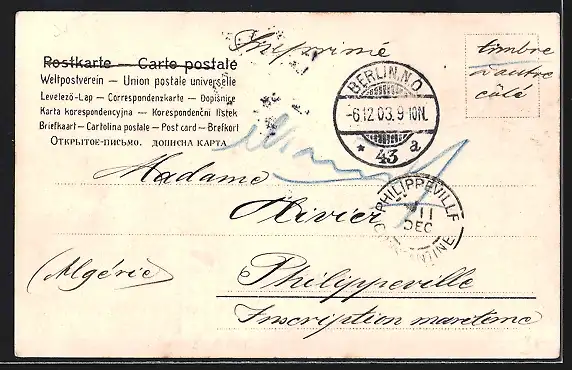 Postkarte — Carte postale
Weltpostverein — Union postale universelle
Levelező-Lap — Correspondenzkarte — Dopisnice
Karta korespondencyjna — Korespondenční lístek
Briefkaart — Cartolina postale — Post card — Brefkort
Открытое-письмо. дописна карта
Imprimé
timbre
d'autre
côté
BERLIN.N.O.
-6.12.03.9-10N.
* 43 a
Madame
Olivier
PHILIPPEVILLE
11
DEC
CONSTANTINE
(Algérie)
Philippeville
Inscription maritime